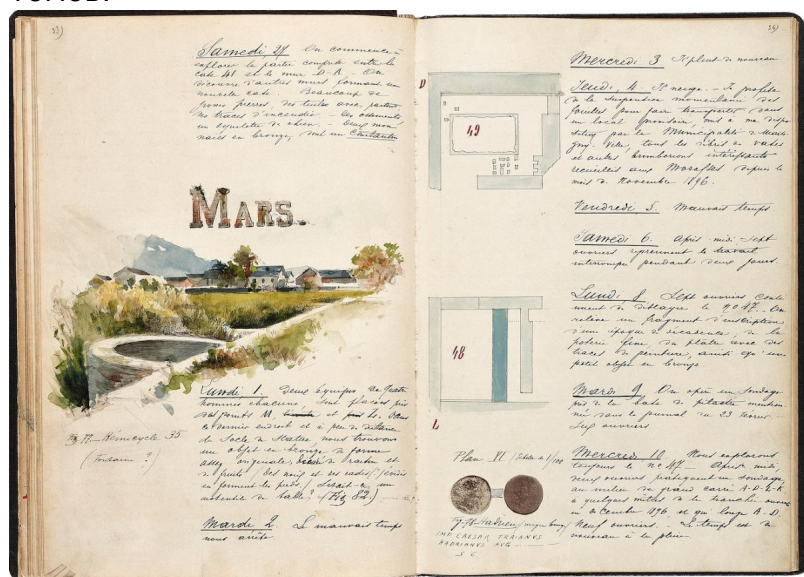 33)
Samedi 27 On commence à
explorer la partie comprise entre la
cote 41 et le mur D-R. On
découvre d'autres murs formant une
nouvelle cave. Beaucoup de
grosses pierres, des tuiles avec, partout
des traces d'incendie. Des ossements
un squelette de chien. Deux mon
naies en bronze, dont un Constantin
MARS.
Lundi 1. Deux équipes de quatre
hommes chacune sont placées près
des points M. et L. Dans
ce dernier endroit et à peu de distance
du Socle de Statue, nous trouvons
un objet en bronze de forme
assez originale, décoré de feuilles et
de fruits. Des noix et des
en forment les pieds. Serait-ce un
ustensile de table? (Fig 82)
Fig. 77 Hémicycle 35
(Fontaine ?)
Mardi 2 Le mauvais temps
nous arrête.
D
49
48
L
Plan VI (Echelle de 1/100
IMP CAESAR TRAIANVS
HADRIANVS AVG
S C
Mercredi 3 Il pleut de nouveau
Jeudi, 4 Il neige. Je profite
de la suspension momentanée des
fouilles pour faire transporter dans
un local provisoire, mis à ma dispo
sition par la Municipalité de Marti-
gny-Ville, tous les débris de vases
et autres brimborions intéressants
recueillis aux Morasses depuis le
mois de Novembre 1896.
Vendredi 5. Mauvais temps
Samedi 6. Après-midi sept
ouvriers reprennent le travail
interrompu pendant deux jours.
Lundi 8 Sept ouvriers conti
nuent de déblayer le no 47. On
relève un fragment d'inscription
d'une époque de décadence, de la
poterie fine, du plâtre avec des
traces de peinture, ainsi qu'un
petit objet en bronze
Mardi 9 On opère un sondage
près de la base de pilastre mention
née dans le journal du 23 février.
Six ouvriers
Mercredi 10 Nous explorons
toujours le no 47. Après midi,
neuf ouvriers pratiquent un sondage
au milieu du grand carré A-D-L-R
à quelques mètres de la tranchée ouverte
en décembre 1896 et qui longe A-D.
Neuf ouvriers. Le temps est de
nouveau à la pluie.